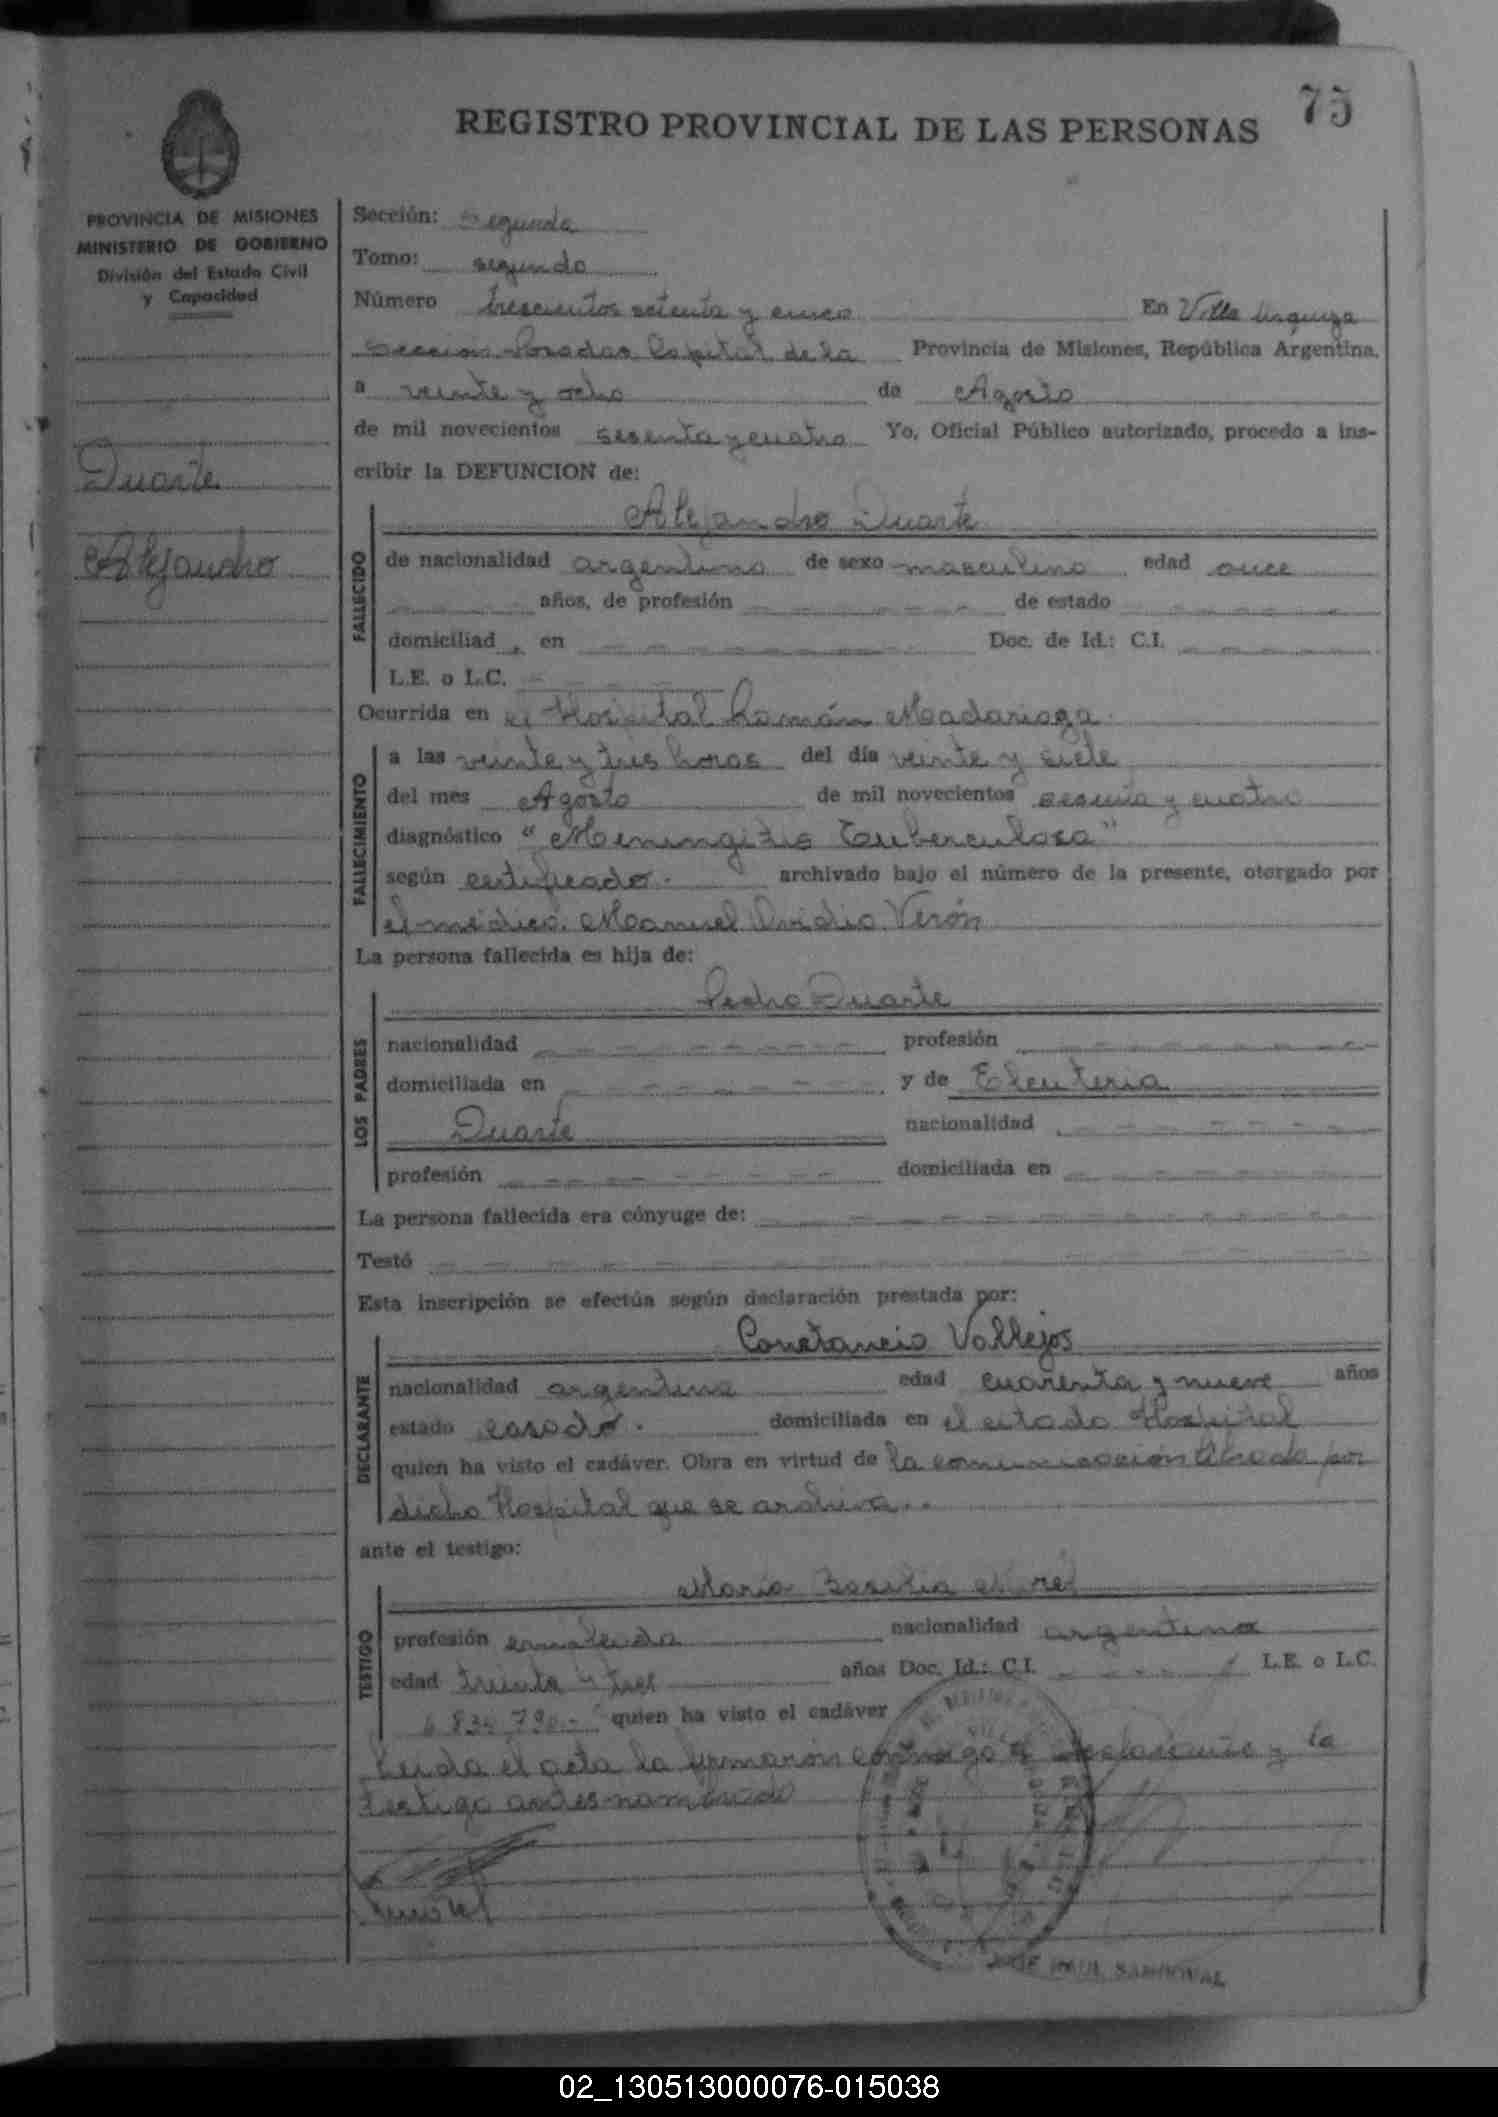 75
REGISTRO PROVINCIAL DE LAS PERSONAS
PROVINCIA DE MISIONES
MINISTERIO DE GOBIERNO
División del Estado Civil
y Capacidad
Duarte
Alejandro
Sección: Segunda
Tomo: segundo
Número trescientos setenta y cinco En Villa Urquiza
Sección Posadas Capital de la Provincia de Misiones, República Argentina,
a veinte y ocho de Agosto
de mil novecientos sesenta y cuatro Yo, Oficial Público autorizado, procedo a ins-
cribir la DEFUNCION de:
FALLECIDO
Alejandro Duarte
de nacionalidad argentino de sexo masculino edad once
años, de profesión de estado
domiciliad en Doc. de Id.: C.I.
L.E. o L.C.
Ocurrida en el Hospital Ramón Madariaga
FALLECIMIENTO
a las veinte y tres horas del día veinte y siete
del mes Agosto de mil novecientos sesenta y cuatro
diagnóstico "Meningitis Tuberculosa"
según certificado. archivado bajo el número de la presente, otorgado por
el médico. Manuel Ovidio Verón
La persona fallecida es hija de:
LOS PADRES
Pedro Duarte
nacionalidad profesión
domiciliada en y de Eleuteria
Duarte nacionalidad
profesión domiciliada en
La persona fallecida era cónyuge de:
Testó
Esta inscripción se efectúa según declaración prestada por:
DECLARANTE
Constancio Vallejos
nacionalidad argentino edad cuarenta y nueve años
estado casado. domiciliada en el citado Hospital
quien ha visto el cadáver. Obra en virtud de la comunicación librada por
dicho Hospital que se archiva..
ante el testigo:
TESTIGO
María Basilia
profesión empleada nacionalidad argentina
edad treinta y tres años Doc. Id.: C.I. L.E. o L.C.
quien ha visto el cadáver
Leida el acta la firmaron conmigo el declarante y la
testigo antes nombrado
JOSE RAUL SANDOVAL
02_130513000076-015038